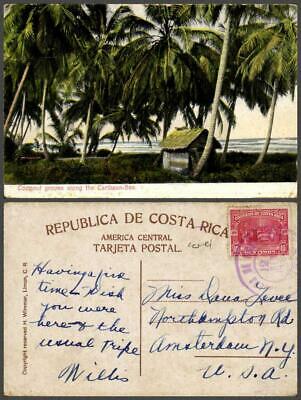 Coconut groves along the Caribean-Sea.
REPUBLICA DE COSTA RICA
AMERICA CENTRAL
TARJETA POSTAL.
Having a fine
time - Wish
you were
here & the
usual Tripe
Willis
Miss
Northampton Rd
Amsterdam N.Y.
U.S.A.
Copyright reserved H. Wimmer, Limon, C. R.